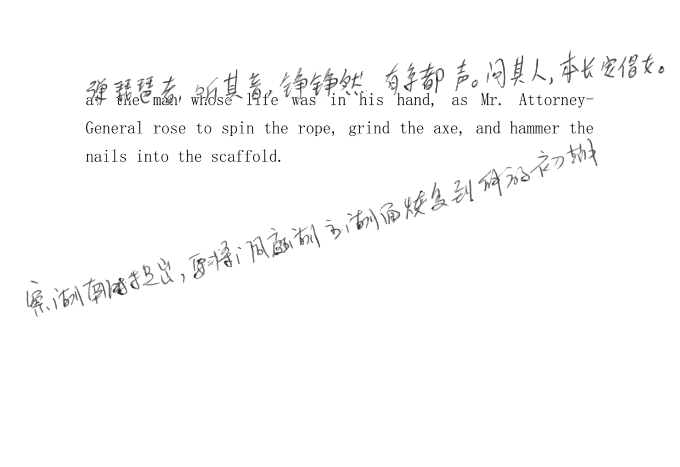 弹琵琶者,听其音,铮铮然有京都声。问其人,本长安倡女。
as the man whose life was in his hand, as Mr. Attorney-
General rose to spin the rope, grind the axe, and hammer the
nails into the scaffold.
察湖南时提出,要将洞庭湖主湖面恢复到解放初期